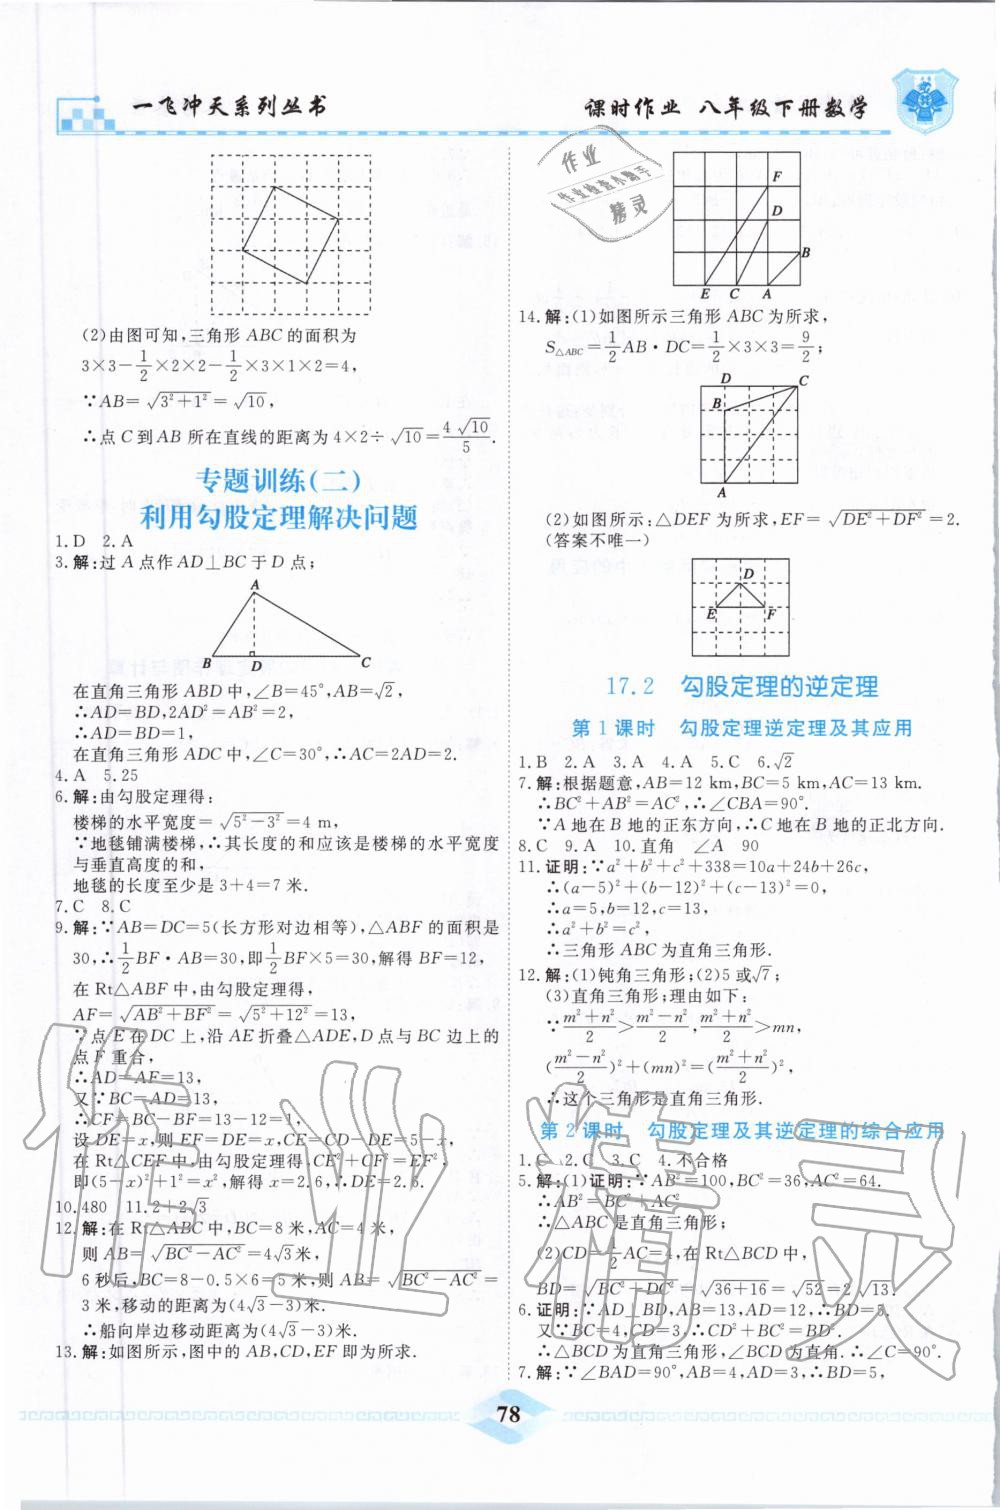 一飞冲天系列丛书
课时作业 八年级下册数学
(2)由图可知,三角形 ABC 的面积为
3×3-1/2×2×2-1/2×3×1×2=4,
∵AB=√(3²+1²)=√10,
∴点 C 到 AB 所在直线的距离为 4×2÷√10=4√10/5.
专题训练(二)
利用勾股定理解决问题
1.D 2.A
3.解:过 A 点作 AD⊥BC 于 D 点;
A
B D C
在直角三角形 ABD 中,∠B=45°,AB=√2,
∴AD=BD,2AD²=AB²=2,
∴AD=BD=1,
在直角三角形 ADC 中,∠C=30°,∴AC=2AD=2.
4.A 5.25
6.解:由勾股定理得:
楼梯的水平宽度=√(5²-3²)=4 m,
∵地毯铺满楼梯,∴其长度的和应该是楼梯的水平宽度
与垂直高度的和,
地毯的长度至少是 3+4=7 米.
7.C 8.C
9.解:∵AB=DC=5(长方形对边相等),△ABF 的面积是
30,∴1/2BF·AB=30,即1/2BF×5=30,解得 BF=12,
在 Rt△ABF 中,由勾股定理得,
AF=√(AB²+BF²)=√(5²+12²)=13,
∵点 E 在 DC 上,沿 AE 折叠△ADE,D 点与 BC 边上的
点 F 重合,
∴AD=AF=13,
又∵BC=AD=13,
∴CF=BC-BF=13-12=1,
设 DE=x,则 EF=DE=x,CE=CD-DE=5-x,
在 Rt△CEF 中,由勾股定理得,CE²+CF²=EF²,
即(5-x)²+1²=x²,解得 x=2.6,∴DE=2.6.
10.480 11.2+2√3
12.解:在 Rt△ABC 中,BC=8 米,AC=4 米,
则 AB=√(BC²-AC²)=4√3米,
6 秒后,BC=8-0.5×6=5 米,则 AB=√(BC²-AC²)=
3 米,移动的距离为(4√3-3)米.
∴船向岸边移动距离为(4√3-3)米.
13.解:如图所示,图中的 AB,CD,EF 即为所求.
F
D
B
E C A
14.解:(1)如图所示三角形 ABC 为所求,
S△ABC=1/2AB·DC=1/2×3×3=9/2;
D C
B
A
(2)如图所示:△DEF 为所求,EF=√(DE²+DF²)=2.
(答案不唯一)
D
E F
17.2 勾股定理的逆定理
第 1 课时 勾股定理逆定理及其应用
1.B 2.A 3.A 4.A 5.C 6.√2
7.解:根据题意,AB=12 km,BC=5 km,AC=13 km.
∴BC²+AB²=AC²,∴∠CBA=90°.
∵A 地在 B 地的正东方向,∴C 地在 B 地的正北方向.
8.C 9.A 10.直角 ∠A 90
11.证明:∵a²+b²+c²+338=10a+24b+26c,
∴(a-5)²+(b-12)²+(c-13)²=0,
∴a=5,b=12,c=13,
∴a²+b²=c²,
∴三角形 ABC 为直角三角形.
12.解:(1)钝角三角形;(2)5 或√7;
(3)直角三角形;理由如下:
∵(m²+n²)/2>(m²-n²)/2,(m²+n²)/2>mn,
((m²-n²)/2)²+(mn)²=((m²+n²)/2)²,
∴这个三角形是直角三角形.
第 2 课时 勾股定理及其逆定理的综合应用
1.C 2.C 3.C 4.不合格
5.解:(1)证明:∵AB²=100,BC²=36,AC²=64.
∴AB²=BC²+AC²
∴△ABC 是直角三角形;
(2)CD=1/2AC=4,在 Rt△BCD 中,
BD=√(BC²+DC²)=√(36+16)=√52=2√13.
6.证明:∵AD⊥BD,AB=13,AD=12,∴BD=5.
又∵BC=4,CD=3,∴CD²+BC²=BD².
∴△BCD 为直角三角形,∠BCD 为直角.∴∠C=90°.
7.解:∵∠BAD=90°,AB=4,AD=3,∴BD=5,
78
作业
作业检查小助手
精灵
作业精灵